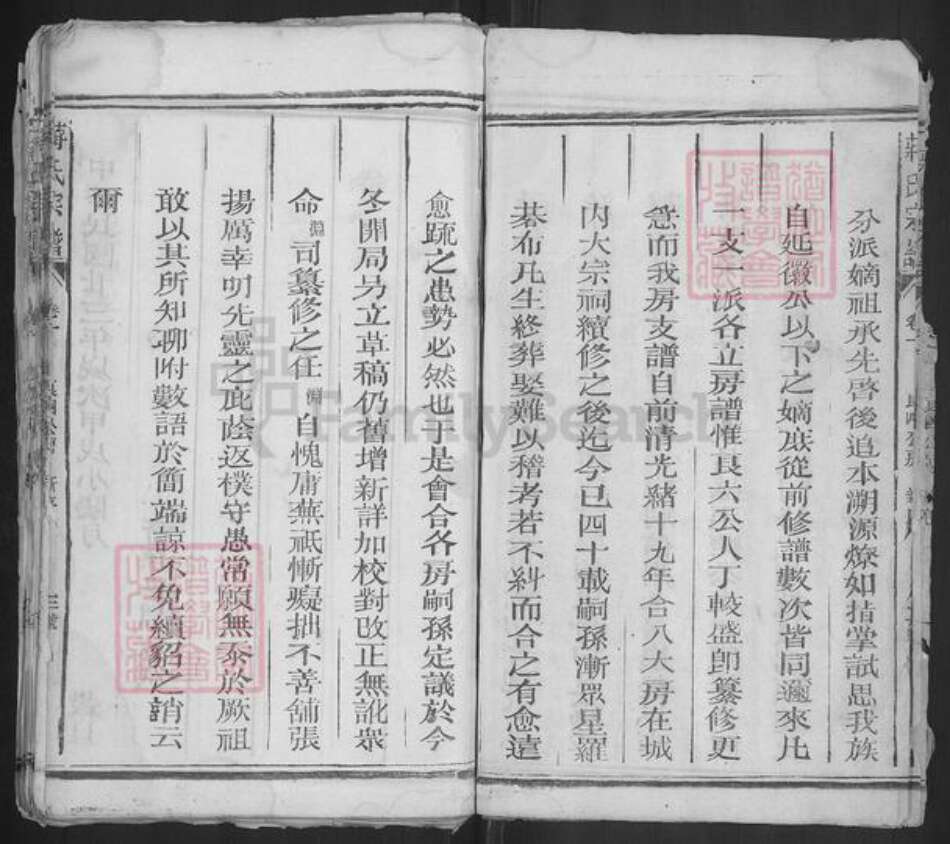 分派嫡祖承先啓後追本溯源燎如指掌試思我族
自延徽公以下之嫡庶從前修譜數次皆同邇來凡
一支一派各立房譜惟良六公人丁較盛卽纂修更
急而我房支譜自前清光緒十九年合八大房在城
內大宗祠續修之後迄今已四十載嗣孫漸眾星羅
棊布凡生終葬娶難以稽考若不糾而合之有愈遠
愈疏之患勢必然也于是會合各房嗣孫定議於今
冬開局另立草稿仍舊增新詳加校對改正無訛衆
命淵司纂修之任淵自愧庸蕪祇慚癡拙不善舖張
揚厲幸叨先靈之庇蔭返樸守愚常願無忝於厥祖
敢以其所知聊附數語於簡端諒不免續貂之誚云
爾
蔣氏宗譜
FamilySearch